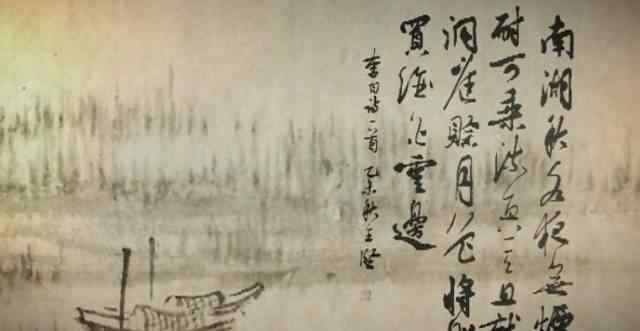 南湖秋水夜無煙
耐可乘流直上天且就
洞庭賒月色將船
買酒白雲邊
李白詩一首 乙未秋王